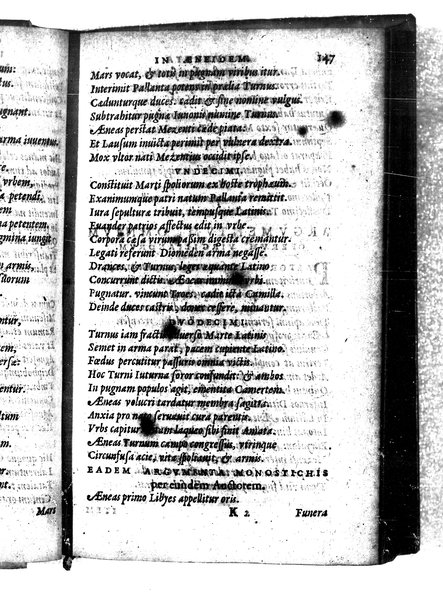 um:
gnant.
arma iuuentus.
vrbem,
a petendi.
na petentem.
gmina iungit
armis,
storum
ntur,
ersæ:
entur.
u
ntur,
o
Mars
IN ÆNEIDEM. 147
Mars vocat, & totis in pugnam viribus itur.
Interimit Pallanta potentis prælia Turnus.
Cadunturque duces. cadit & sine nomine vulgus.
Subtrahitur pugna Iunonis numine Turnus.
Æneas perstat Mezenti cæde piata.
Et Lausum inuicta perimit per vulnera dextra.
Mox vltor nati Mezentius occidit ipse.
VNDECIMI.
Constituit Marti spoliorum ex hoste trophæum.
Exanimumque patri natum Pallanta remittit.
Iura sepulturæ tribuit, tempusque Latinis.
Euander patrios affectus edit in vrbe.
Corpora cæsa virûm passim digesta cremantur.
Legati referunt Diomeden arma negasse.
Drances, & Turnus, leges æquante Latino
Concurrunt dictis. Æneas imminet vrbi.
Pugnatur. vincunt Troes. cadit icta Camilla.
Deinde duces castris, donec cessere, minantur.
DVODECIMI.
Turnus iam fractis aduerso Marte Latinis
Semet in arma parat, pacem cupiente Latino.
Fœdus percutitur passuris omnia victis.
Hoc Turni Iuturna soror confundit: & ambos
In pugnam populos agit, ementita Camertem.
Æneas volucri tardatur membra sagitta.
Anxia pro nato seruauit cura parentis.
Vrbs capitur. letum laqueo sibi finit Amata.
Æneas Turnum campo congressus, vtrinque
Circunfusa acie, vita spoliauit, & armis.
EADEM ARGVMENTA MONOSTICHIS
per eundem Auctorem.
Æneas primo Libyes appellitur oris.
K 2 Funera